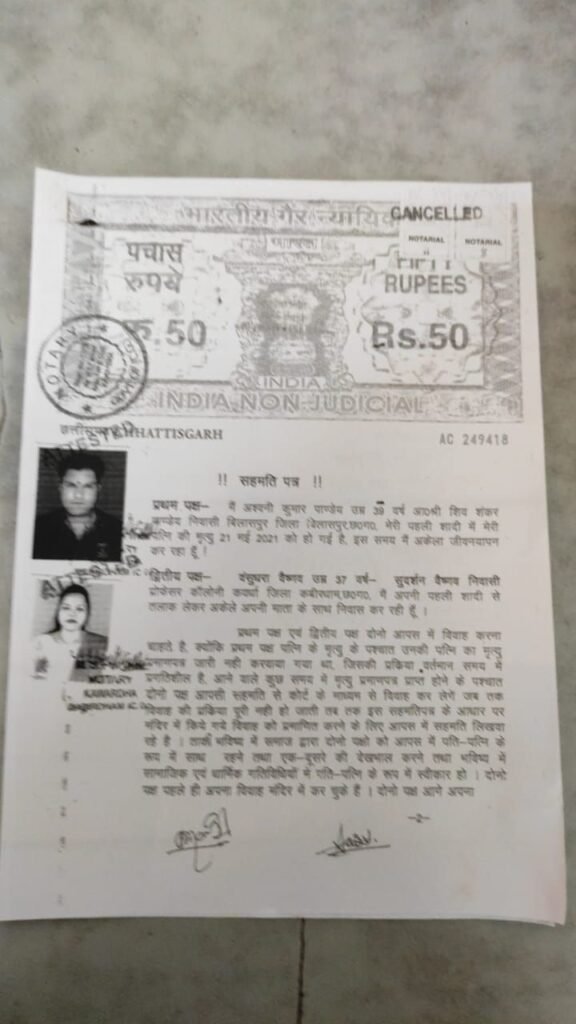 भारतीय गैर न्यायिक
CANCELLED
NOTARIAL NOTARIAL
पचास
रुपये
रु.50
FIFTY
RUPEES
Rs.50
INDIA
INDIA NON JUDICIAL
NOTARY
छत्तीसगढ़ CHHATTISGARH
AC 249418
ATTESTED
!! सहमति पत्र !!
प्रथम पक्ष– मैं अश्वनी कुमार पाण्डेय उम्र 39 वर्ष आ0श्री शिव शंकर
पाण्डेय निवासी बिलासपुर जिला बिलासपुर,छ0ग0, मेरी पहली शादी में मेरी
पत्नि की मृत्यु 21 मई 2021 को हो गई है, इस समय मैं अकेला जीवनयापन
कर रहा हूँ !
ATTESTED
द्वितीय पक्ष– वंसुधरा वैष्णव उम्र 37 वर्ष– सुदर्शन वैष्णव निवासी
प्रोफेसर कॉलोनी कवर्धा जिला कबीरधाम,छ0ग0, मैं अपनी पहली शादी से
तलाक लेकर अकेले अपनी माता के साथ निवास कर रही हूँ ।
प्रथम पक्ष एवं द्वितीय पक्ष दोनो आपस में विवाह करना
चाहते है, क्योंकि प्रथम पक्ष पत्नि के मृत्यु के पश्चात उनकी पत्नि का मृत्यु
प्रमाणपत्र जारी नही करवाया गया था, जिसकी प्रक्रिया वर्तमान समय में
प्रगतिशील है, आने वाले कुछ समय में मृत्यु प्रमाणपत्र प्राप्त होने के पश्चात
दोनो पक्ष आपसी सहमति से कोर्ट के माध्यम से विवाह कर लेगें जब तक
विवाह की प्रक्रिया पूरी नही हो जाती तब तक इस सहमतिपत्र के आधार पर
मंदिर में किये गये विवाह को प्रमाणित करने के लिए आपस में सहमति लिखवा
रहे है । ताकि भविष्य में समाज द्वारा दोनो पक्षो को आपस में पति–पत्नि के
रूप में साथ रहने तथा एक–दूसरे की देखभाल करने तथा भविष्य में
सामाजिक एवं धार्मिक गतिविधियों में पति–पत्नि के रूप में स्वीकार हो । दोनो
पक्ष पहले ही अपना विवाह मंदिर में कर चुके हैं । दोनो पक्ष आगे अपना
NOTARY
KAWARDHA
–2–